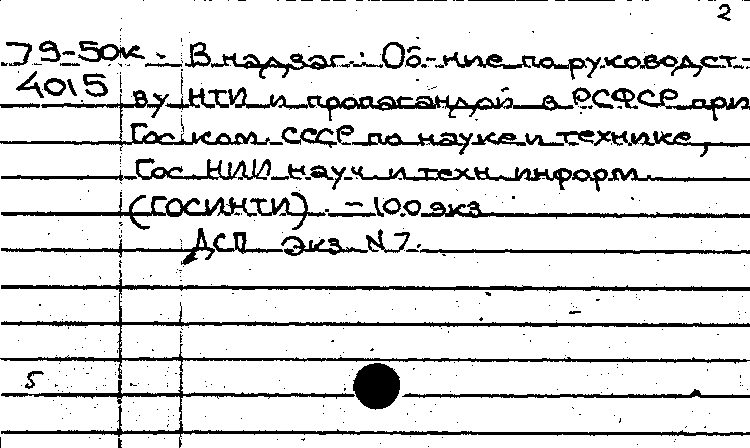 2
79-50к. В надзаг.: Об-ние по руководст-
4015 ву НТИ и пропагандой в РСФСР при
Гос. ком. СССР по науке и технике,
Гос. НИИ науч. и техн. информ.
(ГОСИНТИ). - 100 экз
ДСП Экз. N 7.
5